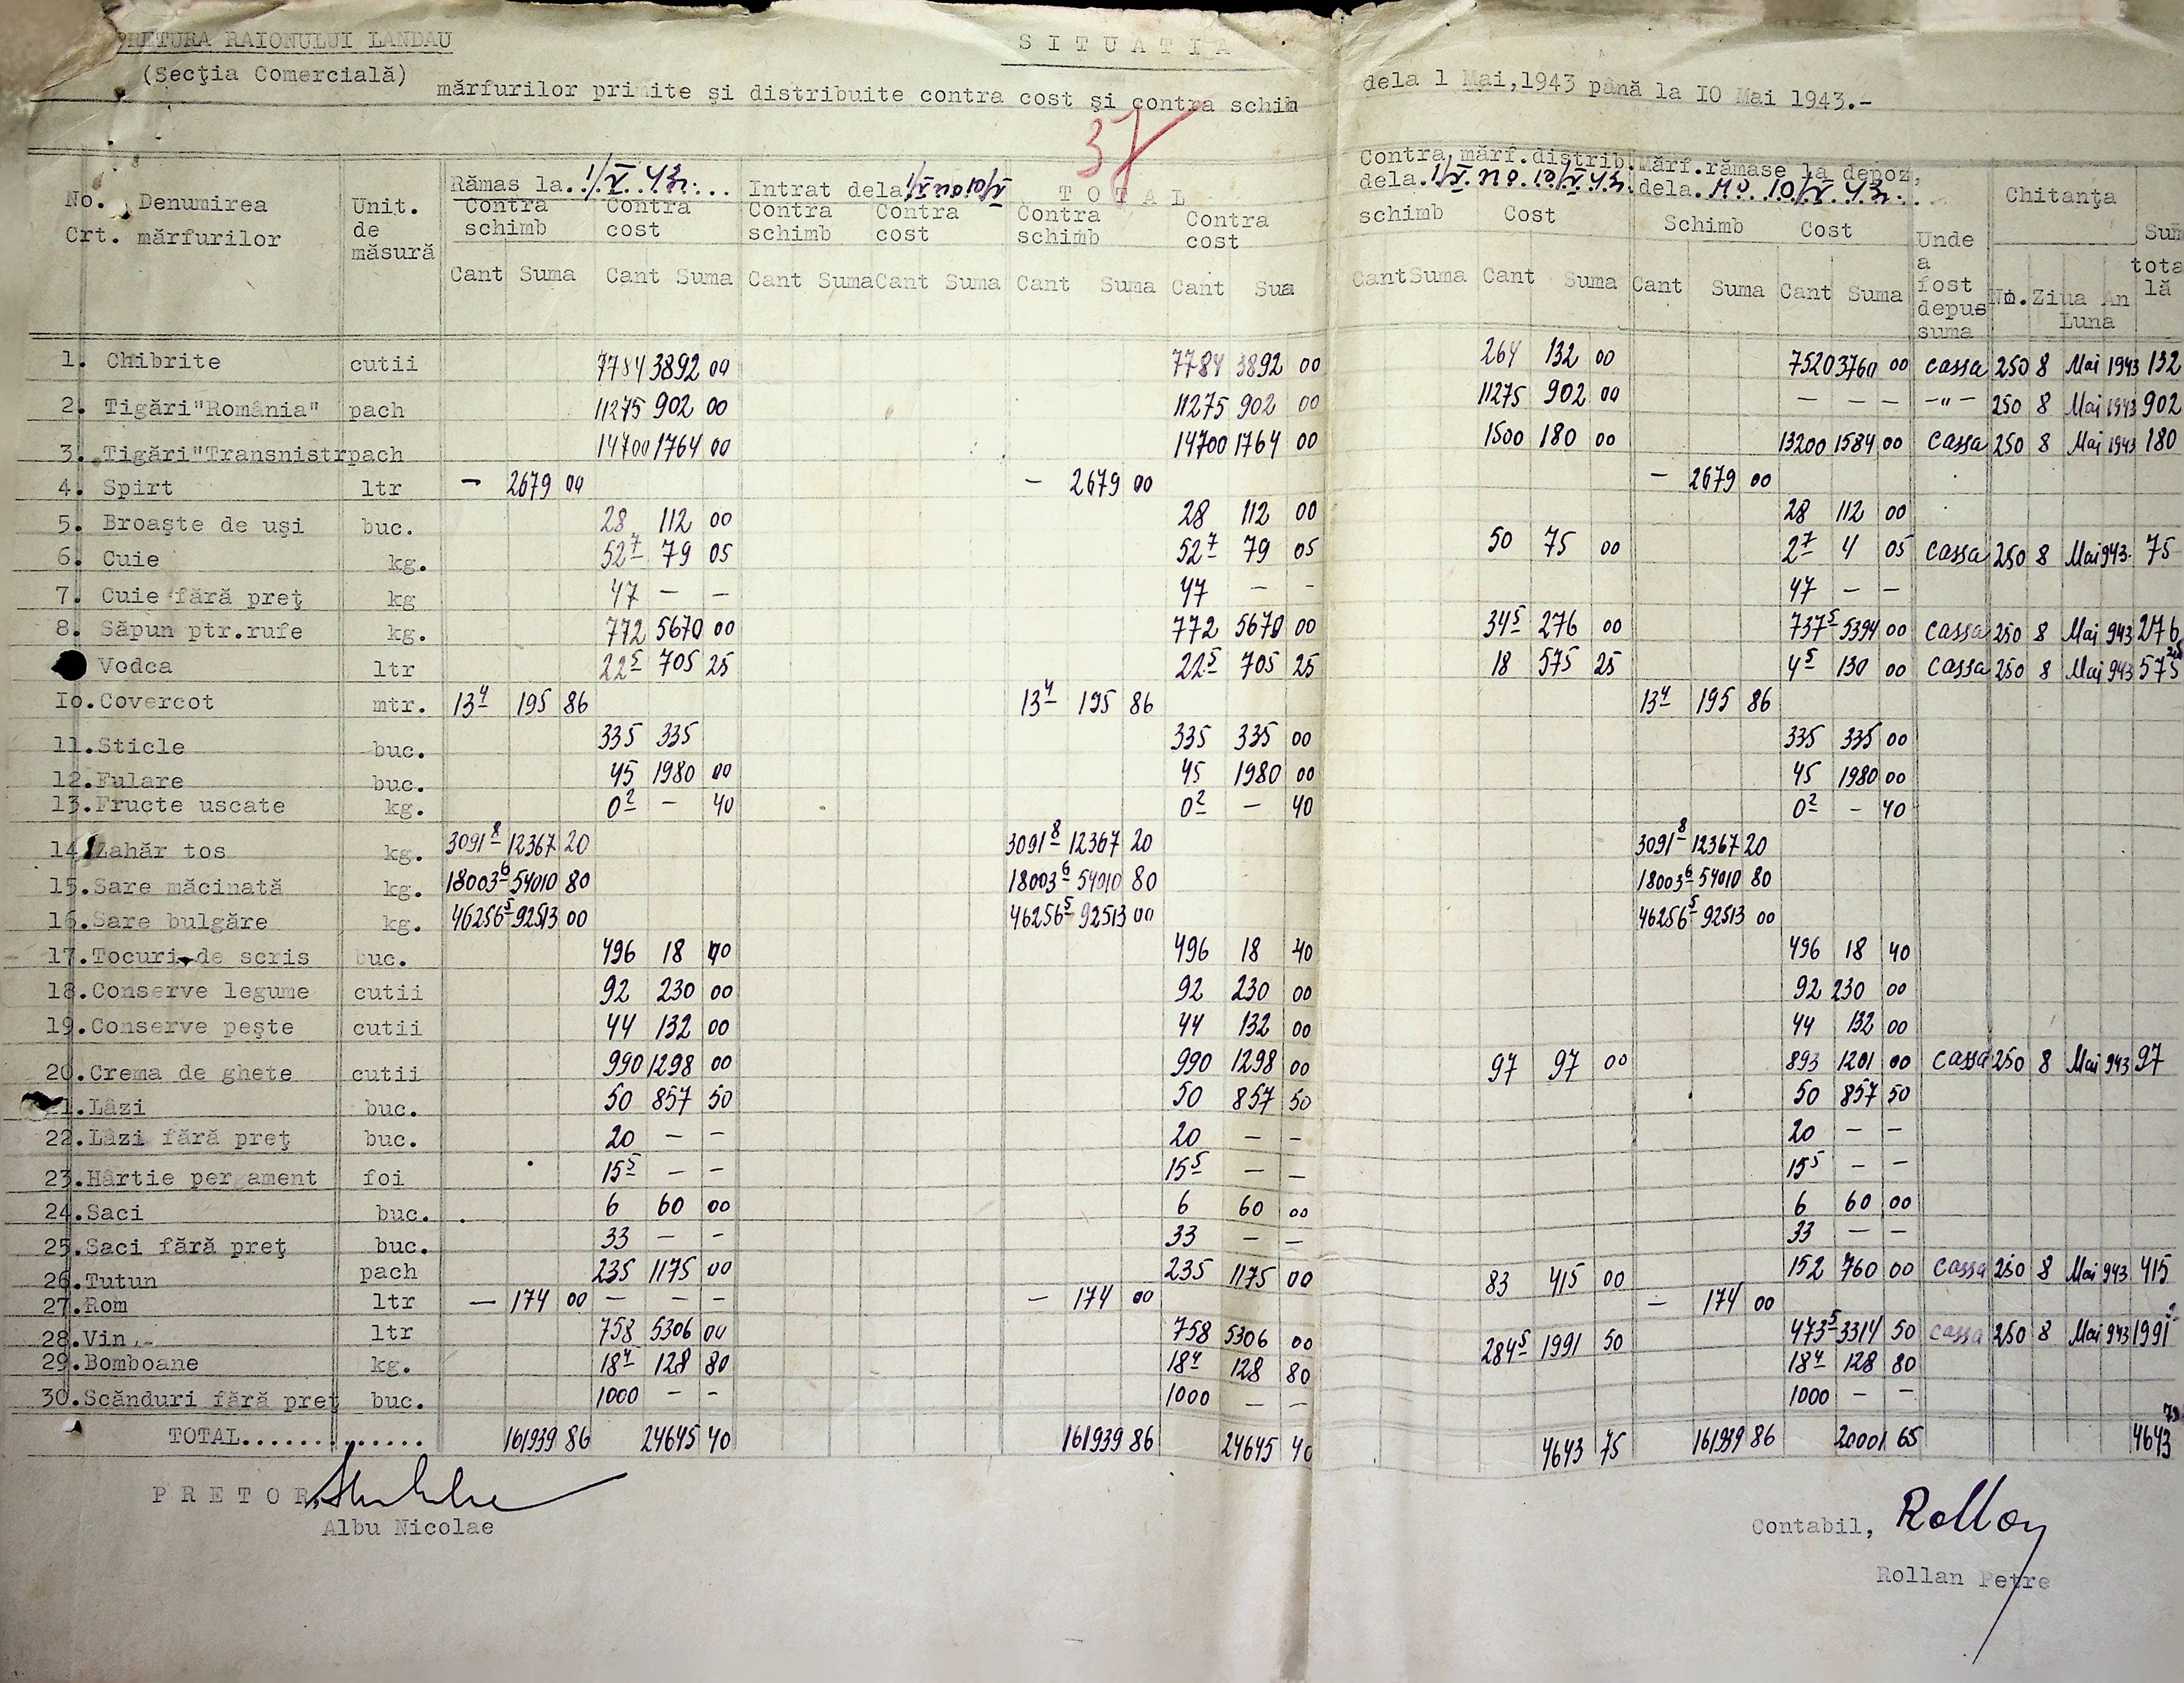 PRETURA RAIONULUI LANDAU
(Secţia Comercială)
S I T U A T I A
mărfurilor primite şi distribuite contra cost şi contra schim dela 1 Mai,1943 până la IO Mai 1943.-
37
No. Crt. Denumirea mărfurilor Unit. de măsură Rămas la..1/V.43... Intrat dela 1/V no 10/V T O T A L Contra mărf.distrib. dela.1/V.no.10/V.43. Mărf.rămase la depoz, dela..no.10/V.43... Unde a fost depus suma Chitanţa Sum tota lă
Contra schimb Contra cost Contra schimb Contra cost Contra schimb Contra cost schimb Cost Schimb Cost
Cant Suma Cant Suma Cant Suma Cant Suma Cant Suma Cant Sua Cant Suma Cant Suma Cant Suma Cant Suma No. Ziua Luna An
1. Chibrite cutii 7784 3892 00 7784 3892 00 264 132 00 7520 3760 00 cassa 250 8 Mai 1943 132
2. Tigări"România" pach 11275 902 00 11275 902 00 11275 902 00 — — — -"- 250 8 Mai 1943 902
3. Tigări"Transnistr pach 14700 1764 00 14700 1764 00 1500 180 00 13200 1584 00 cassa 250 8 Mai 1943 180
4. Spirt ltr — 2679 00 — 2679 00 — 2679 00
5. Broaşte de uşi buc. 28 112 00 28 112 00 28 112 00
6. Cuie kg. 52⁷ 79 05 52⁷ 79 05 50 75 00 2⁷ 4 05 cassa 250 8 Mai 943. 75
7. Cuie fără preţ kg 47 — — 47 — — 47 — —
8. Săpun ptr.rufe kg. 772 5670 00 772 5670 00 34⁵ 276 00 737⁵ 5394 00 cassa 250 8 Mai 943 276
Vodca ltr 22⁵ 705 25 22⁵ 705 25 18 575 25 4⁵ 130 00 cassa 250 8 Mai 943 575 25
Io.Covercot mtr. 13⁴ 195 86 13⁴ 195 86 13⁴ 195 86
11.Sticle buc. 335 335 335 335 00 335 335 00
12.Fulare buc. 45 1980 00 45 1980 00 45 1980 00
13.Fructe uscate kg. 0² — 40 0² — 40 0² — 40
14.Zahăr tos kg. 3091⁸ 12367 20 3091⁸ 12367 20 3091⁸ 12367 20
15.Sare măcinată kg. 18003⁶ 54010 80 18003⁶ 54010 80 18003⁶ 54010 80
16.Sare bulgăre kg. 46256⁵ 92513 00 46256⁵ 92513 00 46256⁵ 92513 00
17.Tocuri de scris buc. 496 18 40 496 18 40 496 18 40
18.Conserve legume cutii 92 230 00 92 230 00 92 230 00
19.Conserve peşte cutii 44 132 00 44 132 00 44 132 00
20.Crema de ghete cutii 990 1298 00 990 1298 00 97 97 00 893 1201 00 cassa 250 8 Mai 943 97
21.Lăzi buc. 50 857 50 50 857 50 50 857 50
22.Lăzi fără preţ buc. 20 — — 20 — — 20 — —
23.Hârtie pergament foi 15⁵ — — 15⁵ — — 15⁵ — —
24.Saci buc. 6 60 00 6 60 00 6 60 00
25.Saci fără preţ buc. 33 — — 33 — — 33 — —
26.Tutun pach 235 1175 00 235 1175 00 83 415 00 152 760 00 cassa 250 8 Mai 943 415
27.Rom ltr — 174 00 — — — — 174 00 — 174 00
28.Vin.- ltr 758 5306 00 758 5306 00 284⁵ 1991 50 473⁵ 3314 50 cassa 250 8 Mai 943 1991
29.Bomboane kg. 18⁴ 128 80 18⁴ 128 80 18⁴ 128 80
30.Scânduri fără preţ buc. 1000 — — 1000 — — 1000 — —
TOTAL............. 161939 86 24645 40 161939 86 24645 40 4643 75 161939 86 20001 65 4643 75
P R E T O R,
Albu Nicolae
Contabil, Rollan
Rollan Petre